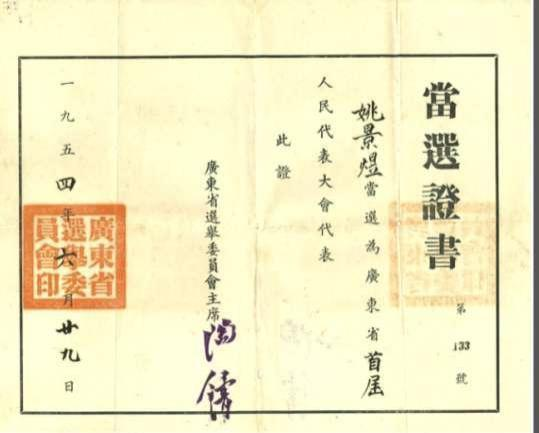 當選證書
第133號
姚景煜當選為廣東省首屆
人民代表大會代表
此證
廣東省選舉委員會主席
陶鑄
一九五四年六月廿九日
廣東省
選舉委
員會印